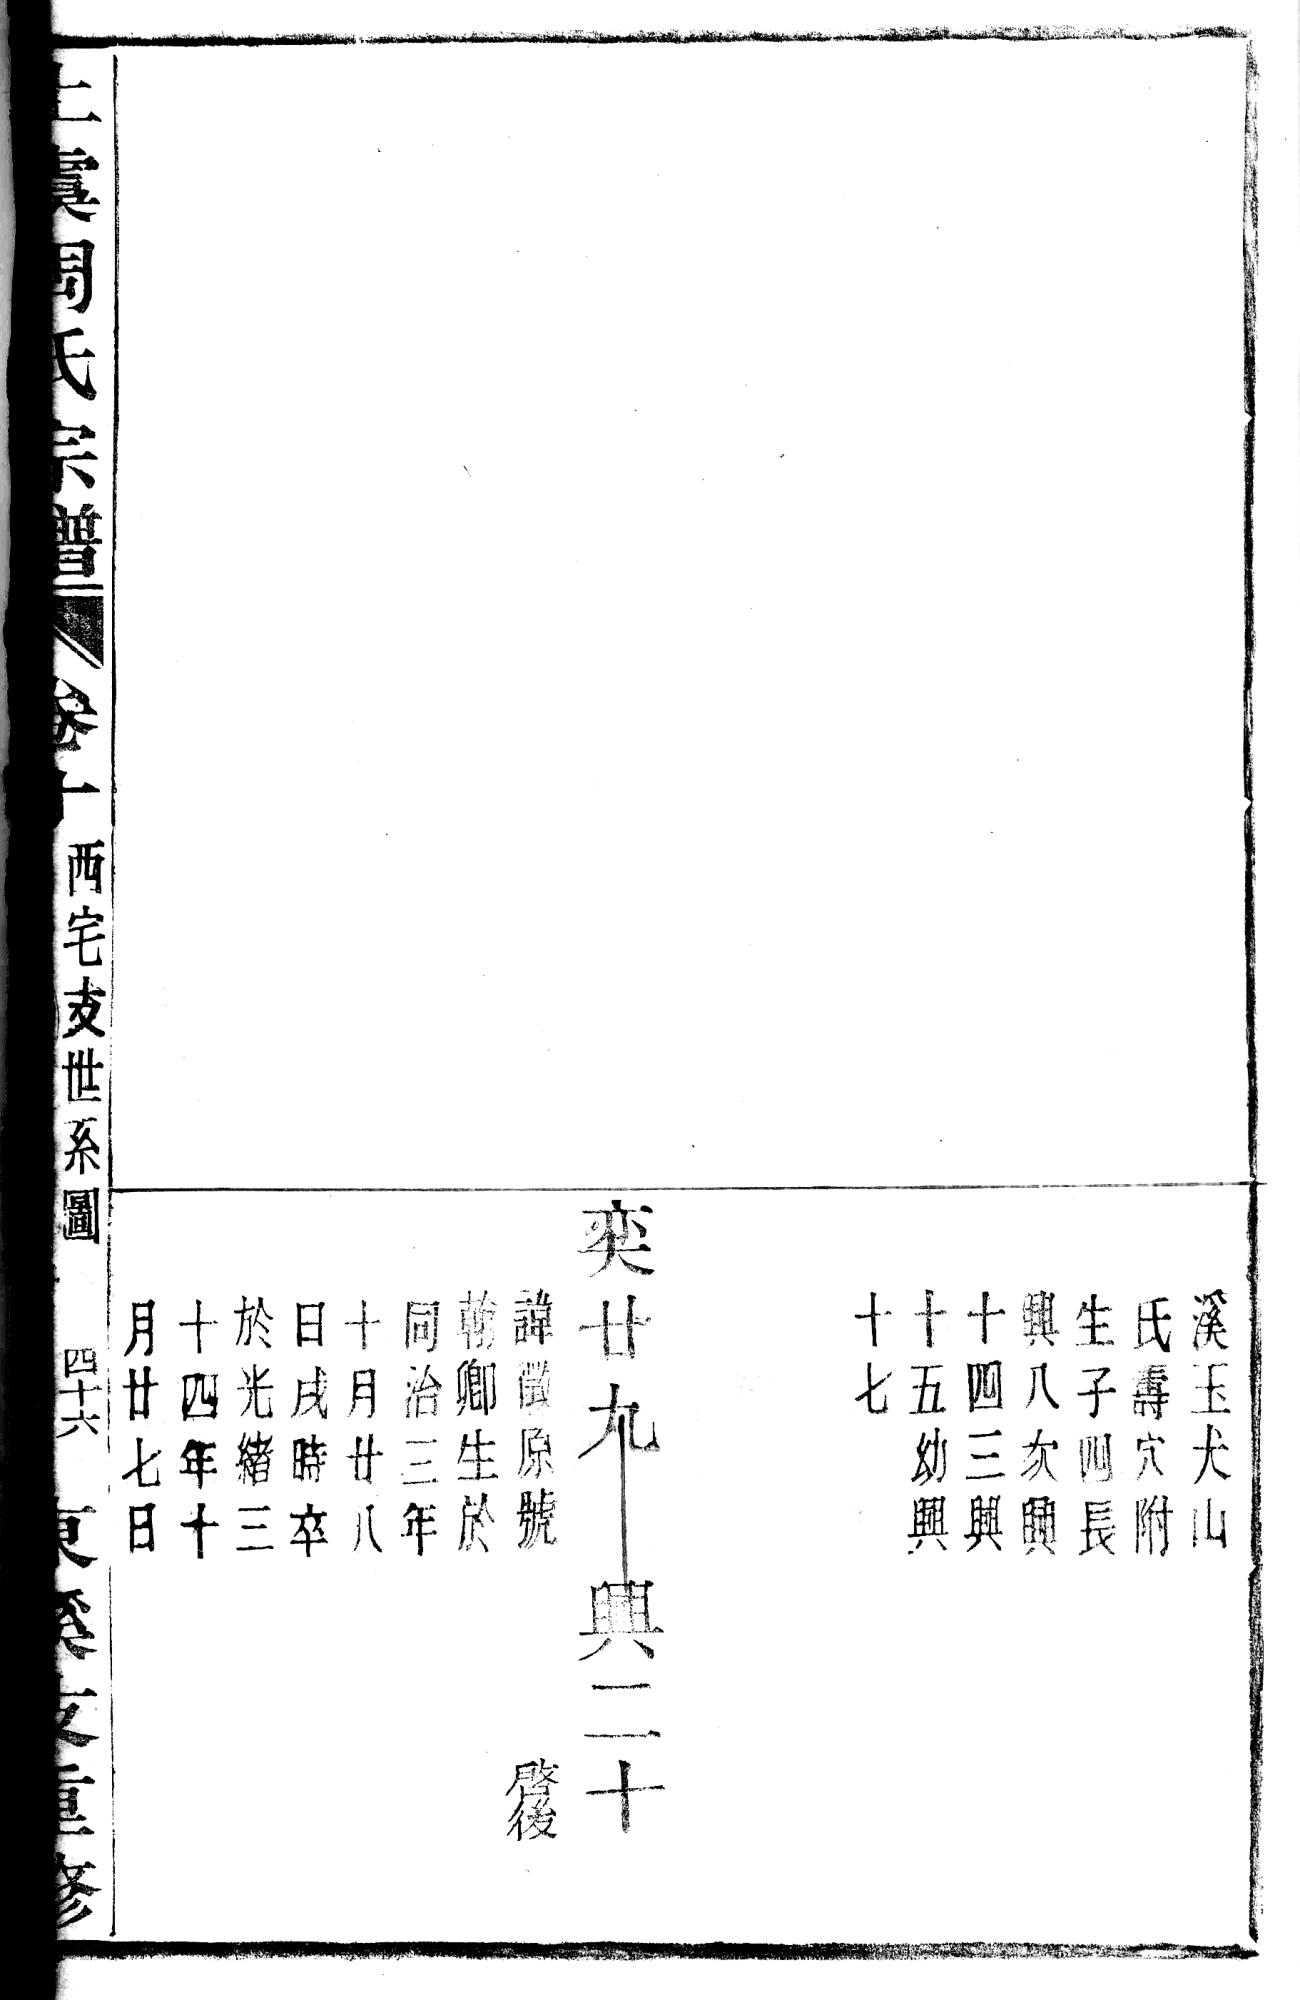 溪玉犬山
氏壽穴附
生子四長
興八次興
十四三興
十五幼興
十七
奕廿九
興二十
諱徵原號
翰卿生於
同治三年
十月廿八
日戌時卒
於光緒三
十四年十
月廿七日
啓後
上虞周氏宗譜
卷十
西宅支世系圖
四十六
東溪支重修